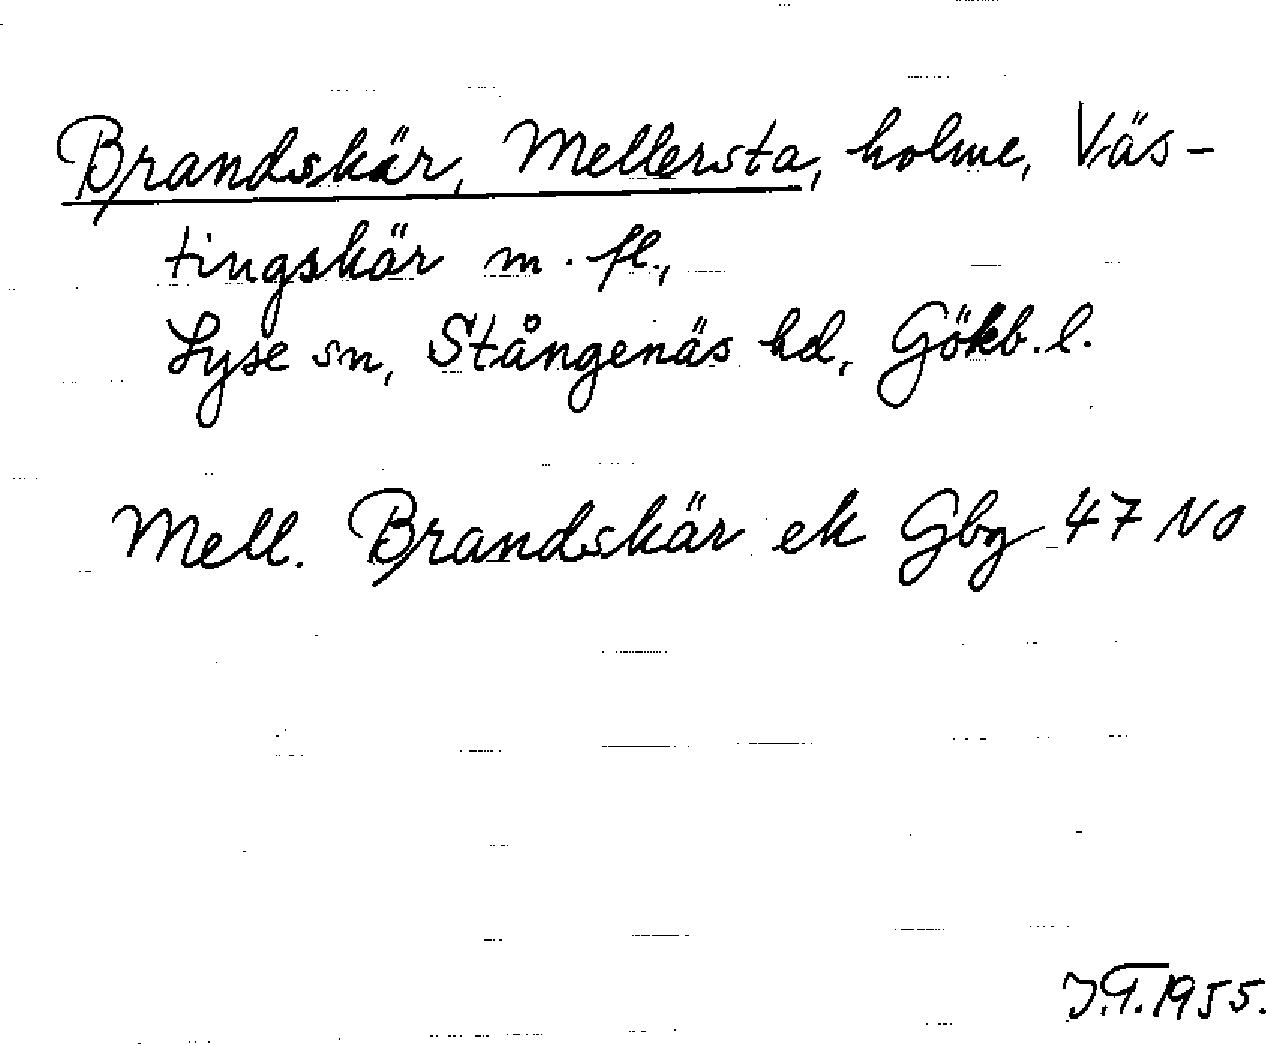 Brandskär, Mellersta, holme, Väs-
tingskär m. fl.,
Lyse sn, Stångenäs hd, Gökb. l.
Mell. Brandskär ek Gbg 47 NO
J.T. 1955.